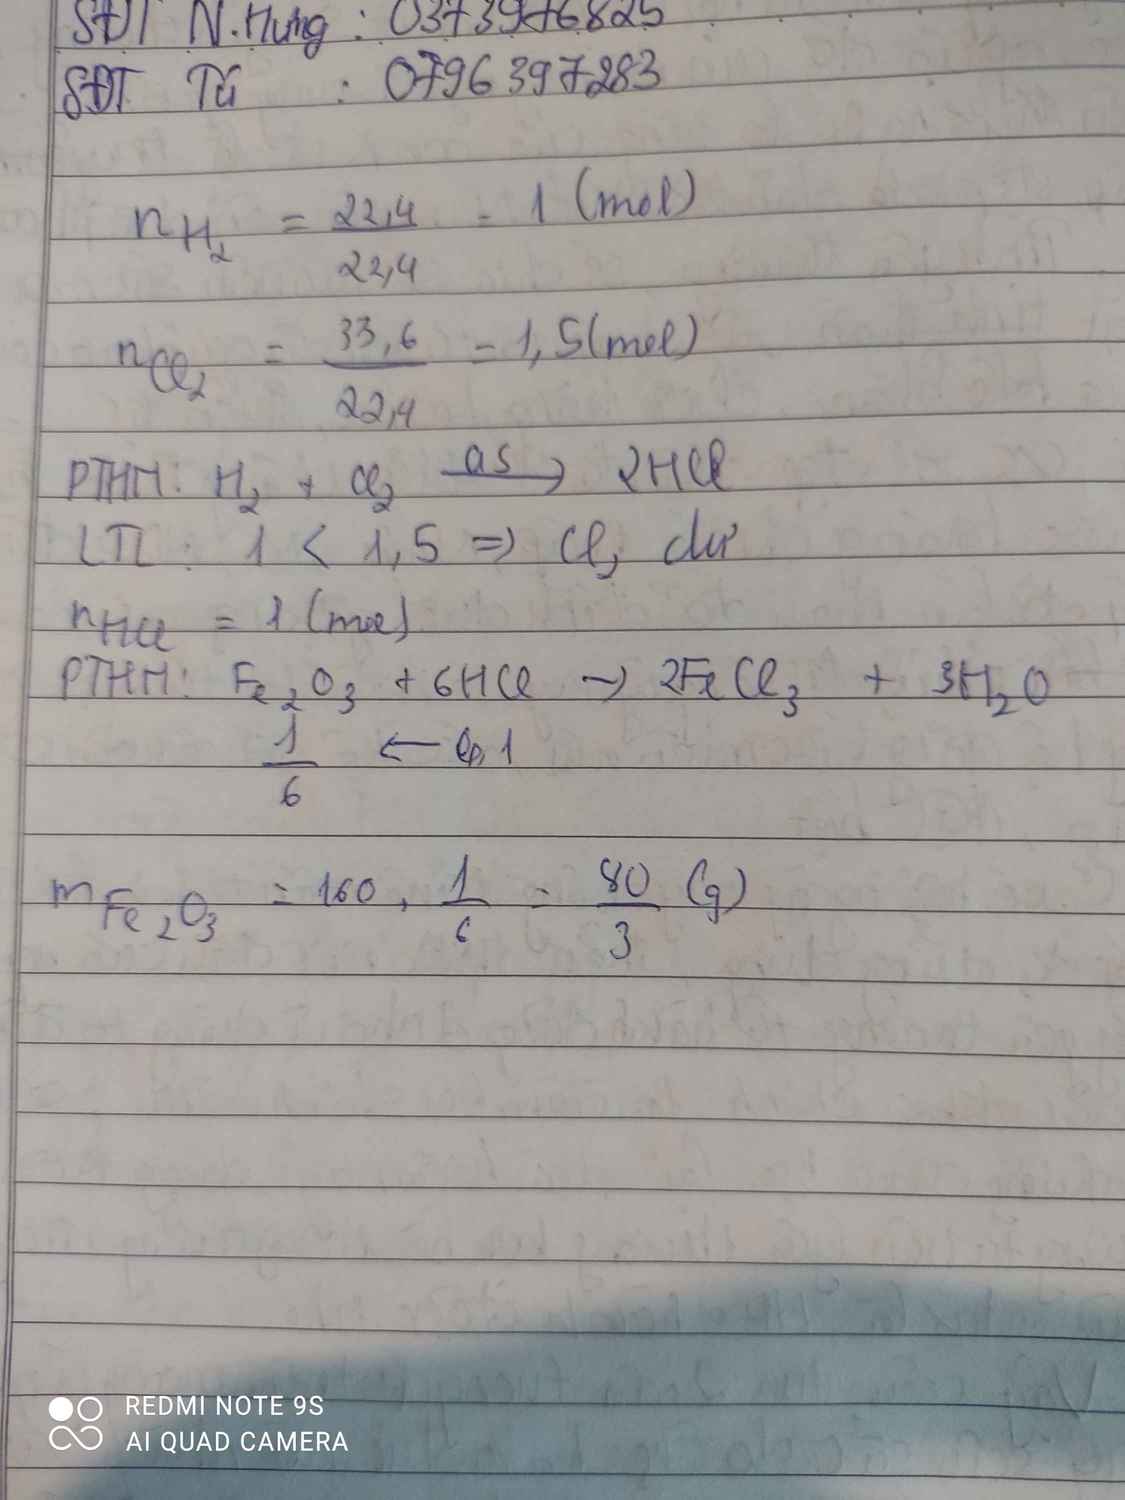 SĐT N.Hưng : 0373976825
SĐT Tú : 0796397283
nH₂ = 22,4/22,4 = 1 (mol)
nCl₂ = 33,6/22,4 = 1,5 (mol)
PTHH: H₂ + Cl₂ as→ 2HCl
LTL: 1 < 1,5 => Cl₂ dư
nHCl = 1 (mol)
PTHH: Fe₂O₃ + 6HCl → 2FeCl₃ + 3H₂O
1/6 ← 1
mFe₂O₃ = 160 . 1/6 = 80/3 (g)
REDMI NOTE 9S
AI QUAD CAMERA